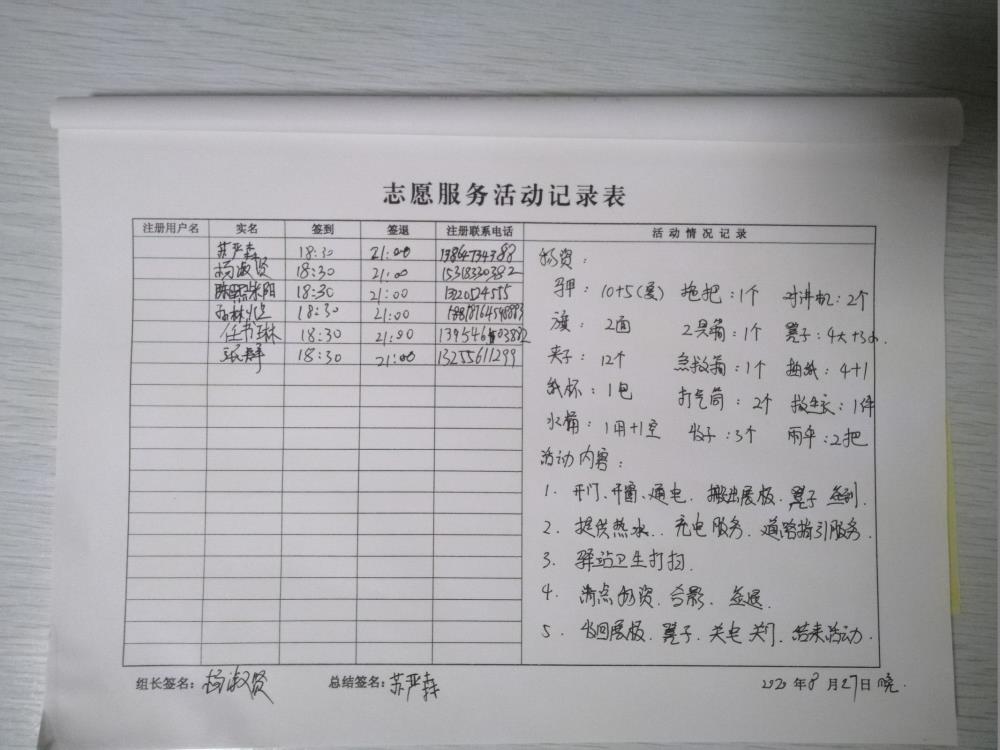 志愿服务活动记录表
注册用户名 实名 签到 签退 注册联系电话 活动情况记录
苏严森 18:30 21:00
杨淑贤 18:30 21:00 15318330382
18:30 21:00
18:30 21:00
任书琳 18:30 21:00
18:30 21:00 13255611299
物资:
马甲: 10+5(爱) 拖把:1个 对讲机:2个
旗: 2面 工具箱:1个 凳子:4大+3小.
夹子: 12个 急救箱:1个 抽纸:4+1
纸杯: 1包 打气筒:2个 救生衣:1件
水桶: 1用+1空 :3个 雨伞:2把
活动内容:
1. 开门、开窗、通电. 搬出展板、凳子 签到.
2. 提供热水. 充电服务. 道路指引服务.
3. 驿站卫生打扫.
4. 清点物资. 合影. 签退.
5. 收回展板. 凳子. 关电 关门. 结束活动.
组长签名: 杨淑贤 总结签名: 苏严森 2020年8月27日晚.